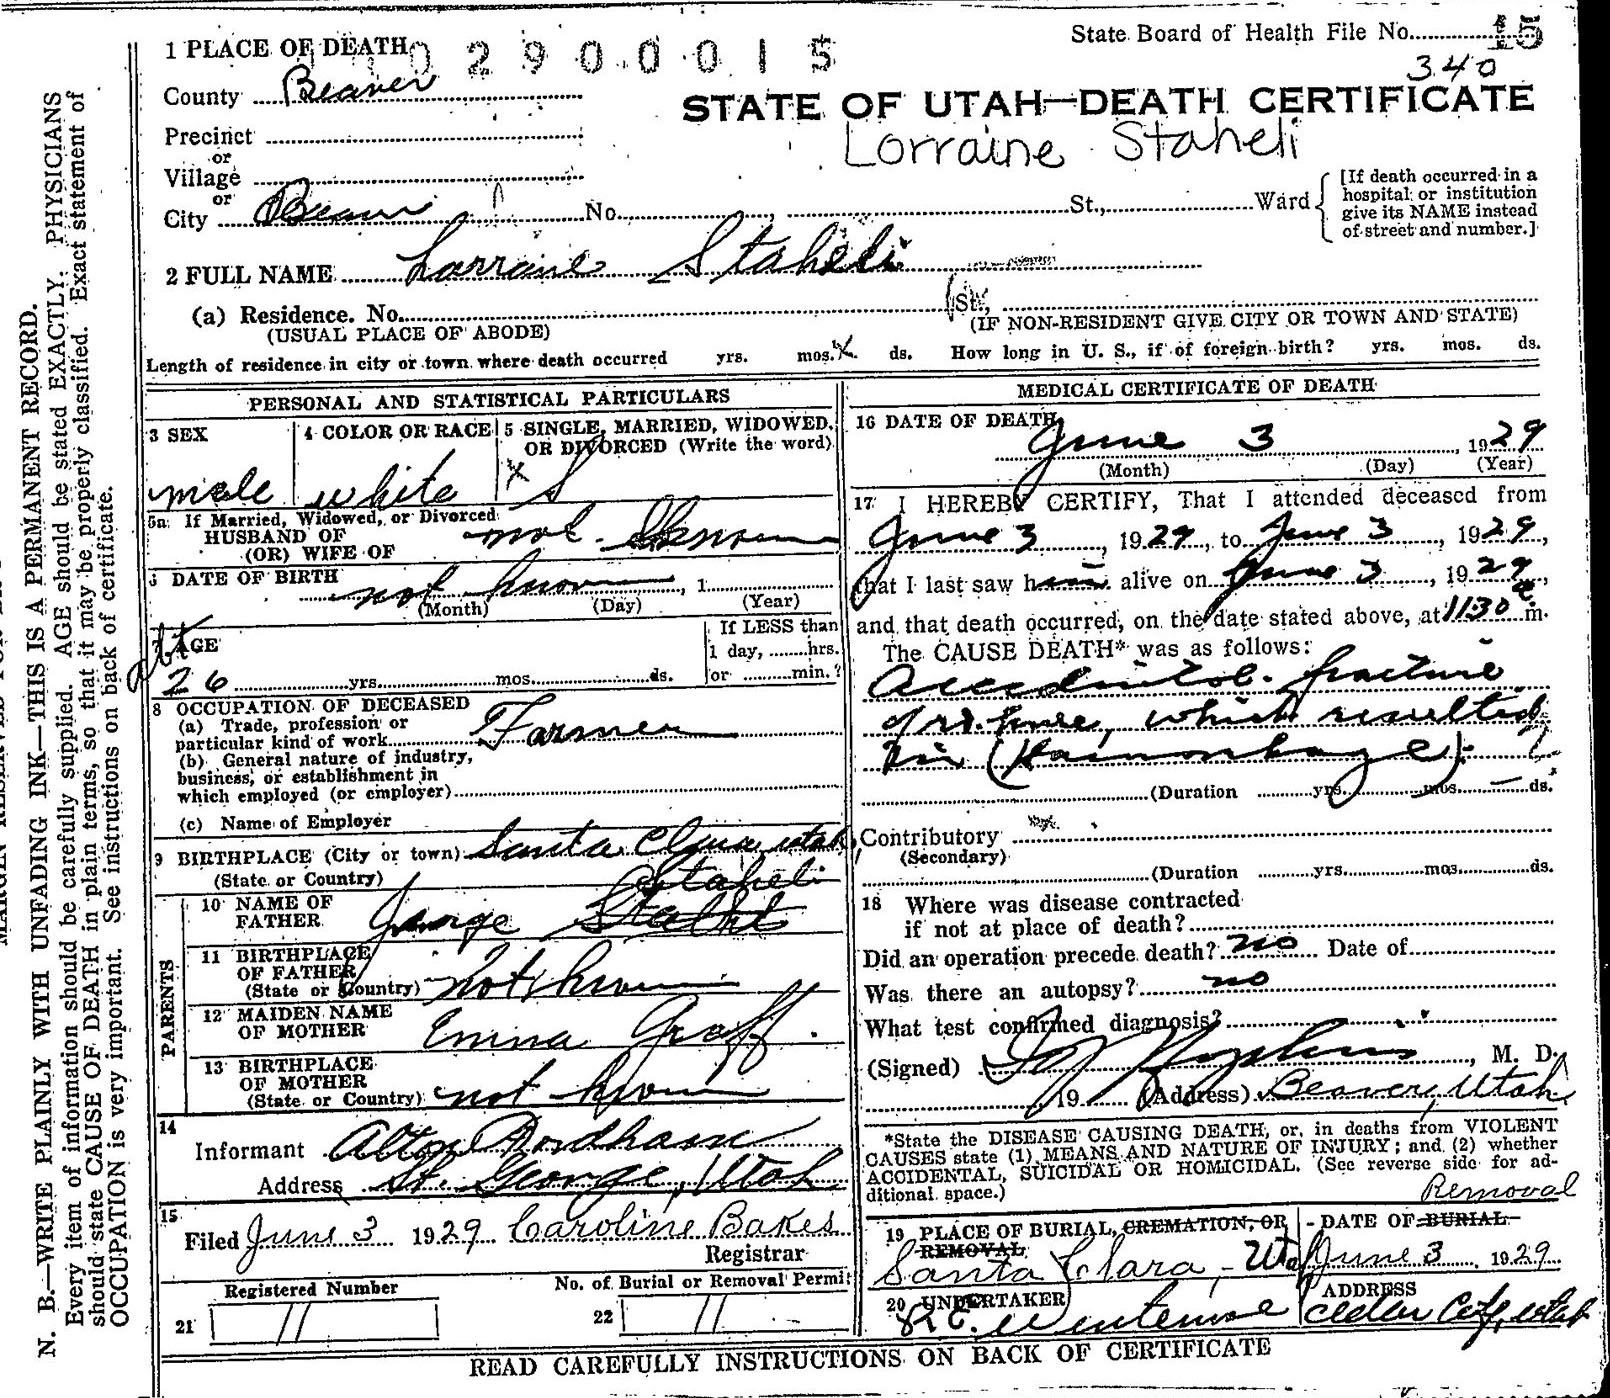 1 PLACE OF DEATH
0 2 9 0 0 0 1 5
State Board of Health File No. 15
340
County Beaver
STATE OF UTAH—DEATH CERTIFICATE
Precinct
Lorraine Staheli
or
Village
or
City Beaver No. St., Ward
[If death occurred in a
hospital or institution
give its NAME instead
of street and number.]
2 FULL NAME Lorraine Staheli
(a) Residence. No. St.,
(USUAL PLACE OF ABODE)
(IF NON-RESIDENT GIVE CITY OR TOWN AND STATE)
Length of residence in city or town where death occurred yrs. mos. ds. How long in U. S., if of foreign birth? yrs. mos. ds.
PERSONAL AND STATISTICAL PARTICULARS
3 SEX
male
4 COLOR OR RACE
white
5 SINGLE, MARRIED, WIDOWED,
OR DIVORCED (Write the word)
X S
5a If Married, Widowed, or Divorced
HUSBAND OF
(OR) WIFE OF
not
6 DATE OF BIRTH
not known , 1
(Month) (Day) (Year)
7 AGE
abt
26 yrs. mos. ds.
If LESS than
1 day, hrs.
or min.?
8 OCCUPATION OF DECEASED
(a) Trade, profession or
particular kind of work Farmer
(b) General nature of industry,
business, or establishment in
which employed (or employer)
(c) Name of Employer
9 BIRTHPLACE (City or town) Santa Clara Utah
(State or Country)
PARENTS
Staheli
10 NAME OF
FATHER George
11 BIRTHPLACE
OF FATHER
(State or Country) not known
12 MAIDEN NAME
OF MOTHER Emma Graff
13 BIRTHPLACE
OF MOTHER
(State or Country) not known
14
Informant Alton Fordham
Address St. George, Utah
15
Filed June 3 1929 Caroline Bakes
Registrar
Registered Number
21 11
No. of Burial or Removal Permit
22 11
MEDICAL CERTIFICATE OF DEATH
16 DATE OF DEATH
June 3 , 1929
(Month) (Day) (Year)
17 I HEREBY CERTIFY, That I attended deceased from
June 3 , 1929, to June 3 , 1929,
that I last saw him alive on June 3 , 1929,
and that death occurred, on the date stated above, at 1130 a m.
The CAUSE DEATH* was as follows:
Accidental fracture
of rt. knee, which resulted
in (Haemorrhage).
(Duration yrs. mos. ds.
Contributory
(Secondary)
(Duration yrs. mos. ds.
18 Where was disease contracted
if not at place of death?
Did an operation precede death? no Date of
Was there an autopsy? no
What test confirmed diagnosis?
(Signed) , M. D.
, 19 (Address) Beaver, Utah
*State the DISEASE CAUSING DEATH, or, in deaths from VIOLENT
CAUSES state (1) MEANS AND NATURE OF INJURY; and (2) whether
ACCIDENTAL, SUICIDAL OR HOMICIDAL. (See reverse side for ad-
ditional space.)
Removal
19 PLACE OF BURIAL, CREMATION, OR
REMOVAL
Santa Clara, - Utah
DATE OF BURIAL
June 3 , 1929
20 UNDERTAKER
ADDRESS
Cedar City, Utah
READ CAREFULLY INSTRUCTIONS ON BACK OF CERTIFICATE
N. B.—WRITE PLAINLY WITH UNFADING INK—THIS IS A PERMANENT RECORD.
Every item of information should be carefully supplied. AGE should be stated EXACTLY. PHYSICIANS
should state CAUSE OF DEATH in plain terms, so that it may be properly classified. Exact statement of
OCCUPATION is very important. See instructions on back of certificate.